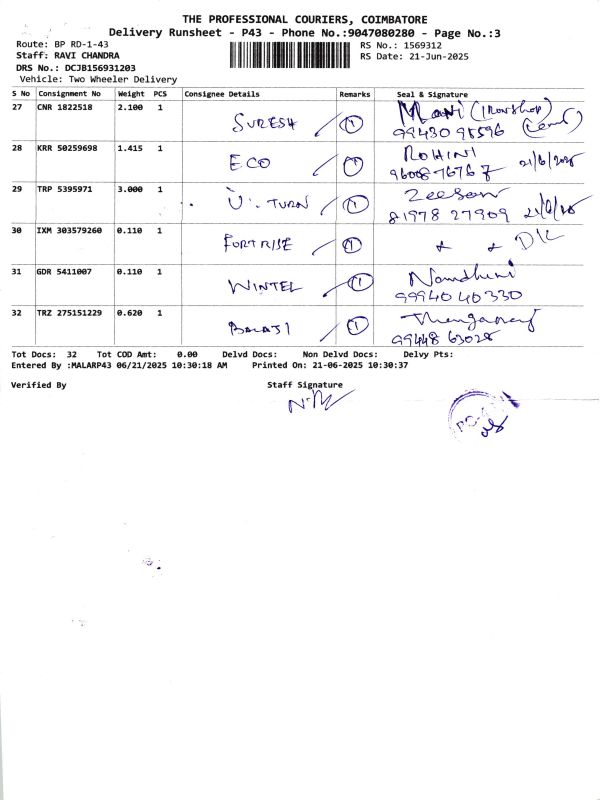 THE PROFESSIONAL COURIERS, COIMBATORE
Delivery Runsheet - P43 - Phone No.:9047080280 - Page No.:3
Route: BP RD-1-43 RS No.: 1569312
Staff: RAVI CHANDRA RS Date: 21-Jun-2025
DRS No.: DCJB156931203
Vehicle: Two Wheeler Delivery
S No Consignment No Weight PCS Consignee Details Remarks Seal & Signature
27 CNR 1822518 2.100 1 SURESH 1 Mani
99430 98596
28 KRR 50259698 1.415 1 ECO 1 ROHINI
96008 76767 21/6/2025
29 TRP 5395971 3.000 1 U. TURN 1 Zeeson
81978 27909 21/6/25
30 IXM 303579260 0.110 1 FORTRISE 1 DIL
31 GDR 5411007 0.110 1 WINTEL 1 Nandhini
99940 40330
32 TRZ 275151229 0.620 1 BALAJI 1 Thangaraj
99448 63028
Tot Docs: 32 Tot COD Amt: 0.00 Delvd Docs: Non Delvd Docs: Delvy Pts:
Entered By :MALARP43 06/21/2025 10:30:18 AM Printed On: 21-06-2025 10:30:37
Verified By Staff Signature